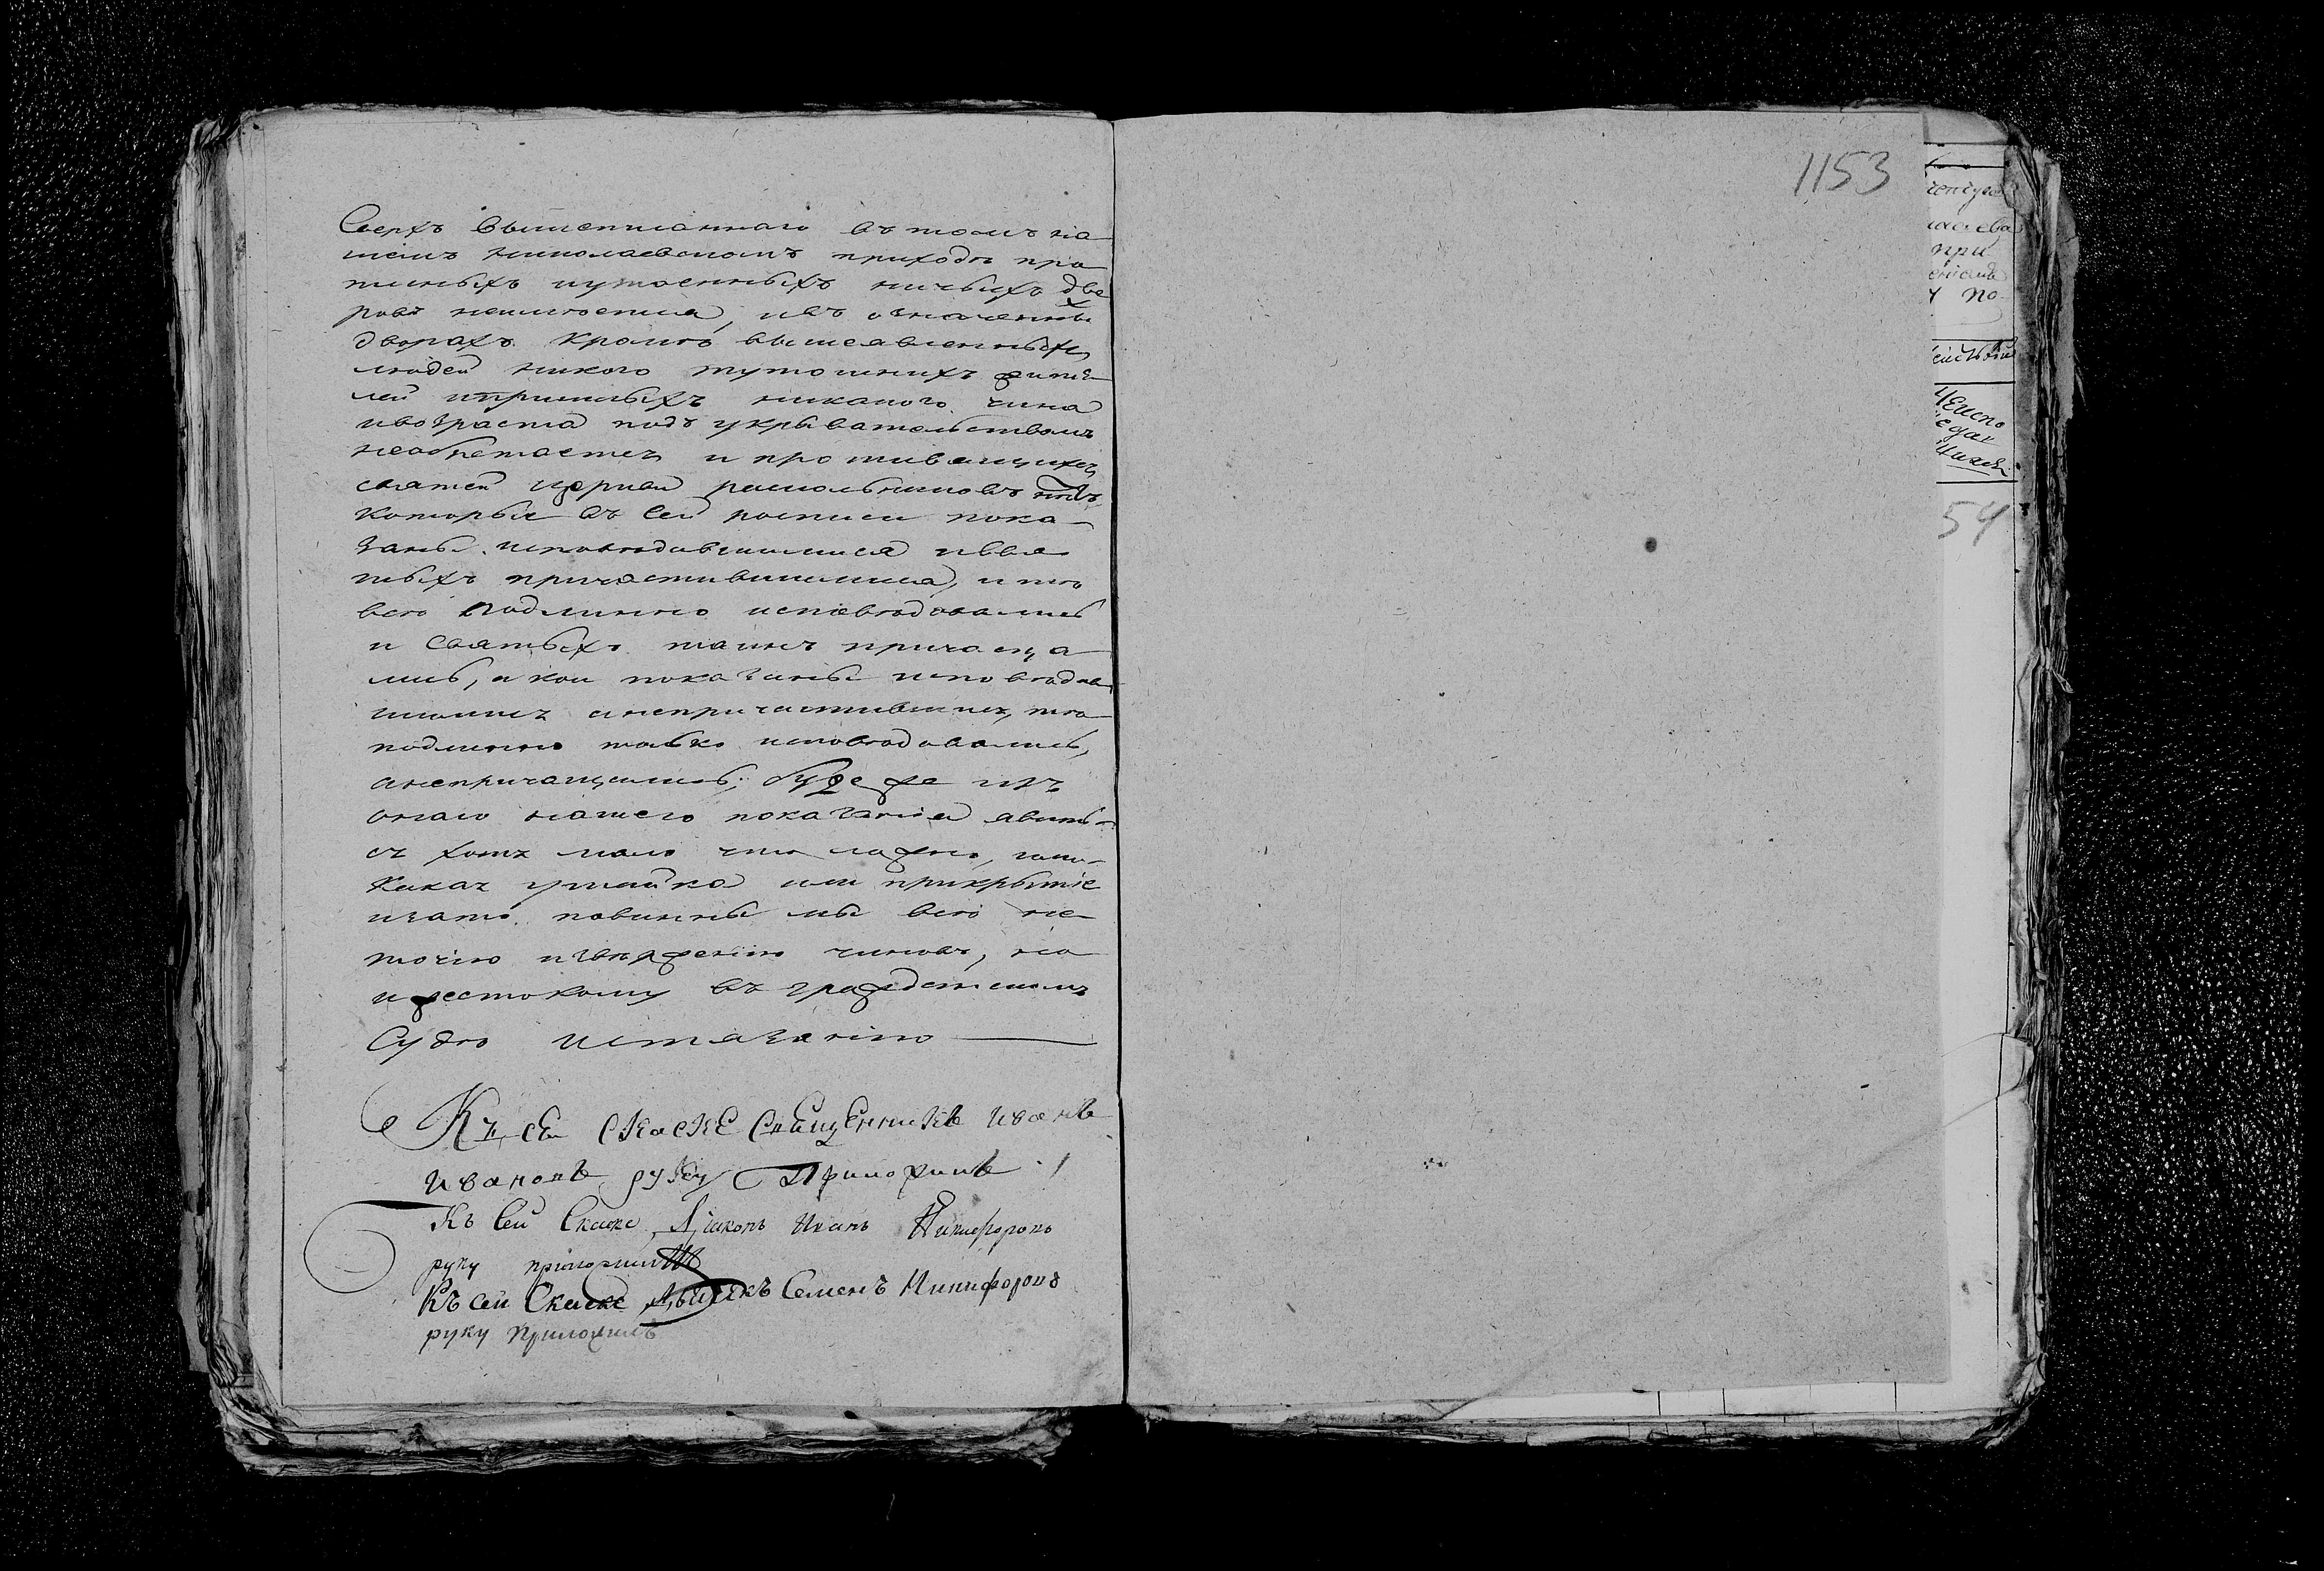 Сверхъ вышеписаннаго въ томъ на
шемъ николаевскомъ приходѣ про
писныхъ иутаенныхъ ничьихъ дво
ровъ неимѣется, ивъ означенны х
дворахъ кромѣ вышеявленныхъ
людей никого тутошнихъ жите
лей ипришлыхъ никакого чина
ивозраста подъ укрывательствомъ
необретается и противящихся
святей церкви раскольниковъ нѣтъ
которые въ сей росписи пока
заны исповѣдавшимися исвя
тыхъ причастившимися, и тѣ
всѣ подлинно исповѣдовались
и святыхъ таинъ причаща
лись, а кои показаны исповѣдав
шимися анепричастившися, тѣ
подлинно только исповѣдовались,
анепричащались; буде же изъ
онаго нашего показанія явит
ся хотя мало что ложно, или
какая утайка или прикрытіе
изато повинны мы всѣ не
точію изверженію чиновъ, но
ижестокому въ гражданском
Судѣ истязанію
Къ сей скаске священникъ иванъ
ивановъ руку приложилъ
Къ Сей Скаске Діаконъ Иванъ Никифоровъ
руку приложилъ
Къ сей Скаске Дьячекъ Семенъ Никифоровъ
руку приложилъ
1153
при
по
54